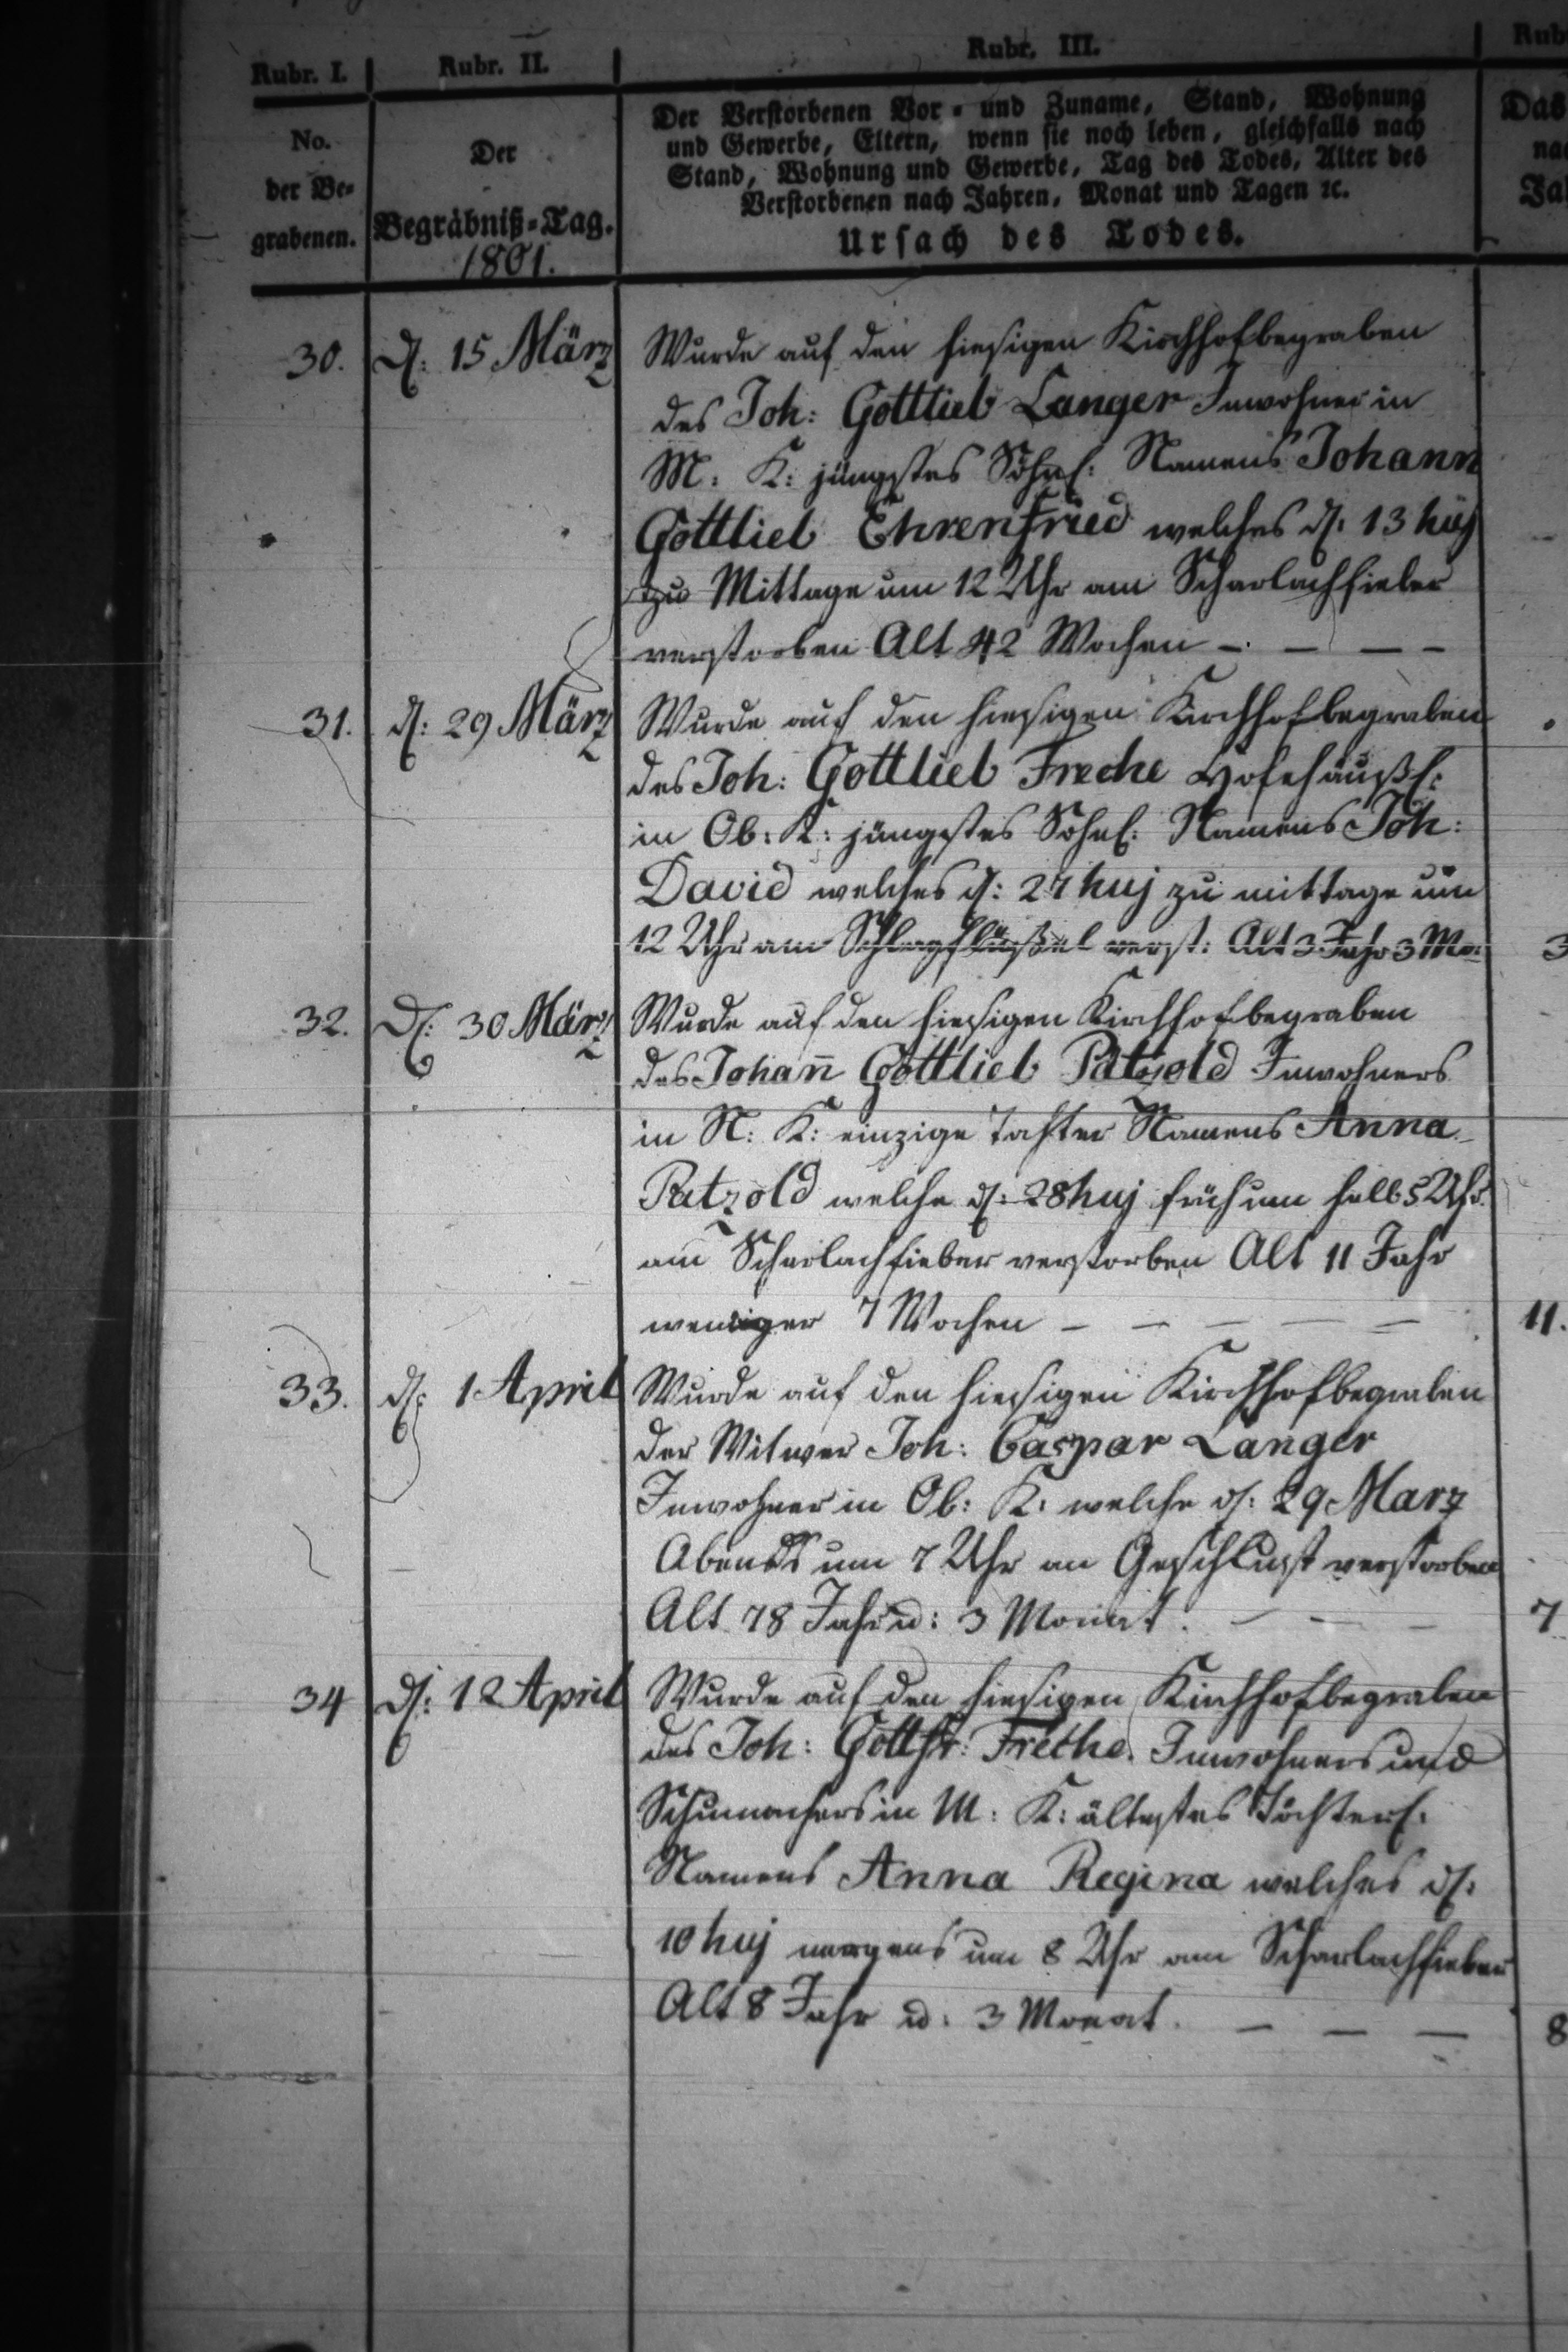 Rubr. I.
Rubr. II.
Rubr. III.
Rub
No.
der Be-
grabenen.
Der
Begräbniß-Tag.
1801.
Der Verstorbenen Vor- und Zuname, Stand, Wohnung
und Gewerbe, Eltern, wenn sie noch leben, gleichfalls nach
Stand, Wohnung und Gewerbe, Tag des Todes, Alter des
Verstorbenen nach Jahren, Monat und Tagen ꝛc.
Ursach des Todes.
Das
na
Ja
30.
d: 15 März
Wurde auf den hiesigen Kirchhof begraben
des Joh: Gottlieb Langer Inwohner in
M: K: jüngstes Söhnl: Namens Johann
Gottlieb Ehrenfried welches d: 13 huj
zu Mittage um 12 Uhr am Scharlachfieber
verstorben Alt 42 Wochen – – – –
31.
d: 29 März
Wurde auf den hiesigen Kirchhof begraben
des Joh: Gottlieb Freche Hofehäußl:
in Ob: K: jüngstes Sohnl: Namens Joh:
David welches d: 27 huj zu mittage um
12 Uhr am verst: Alt 3 Jahr 3 Mo:
3
32.
D: 30 März
Wurde auf den hiesigen Kirchhof begraben
des Johan̄ Gottlieb Patzold Inwohners
in N: K: einzige Tochter Namens Anna
Patzold welche d: 28 huj früh um halb 5 Uhr
am Scharlachfieber verstorben Alt 11 Jahr
weniger 7 Wochen – – – – –
11.
33.
d: 1 April
Wurde auf den hiesigen Kirchhof begraben
der Witwer Joh: Caspar Langer
Inwohner in Ob: K: welche d: 29 Marz
Abends um 7 Uhr an verstorben
Alt 78 Jahr u: 3 Monat. – – –
7
34
d: 12 April
Wurde auf den hiesigen Kirchhof begraben
des Joh: Gottfr: Freche Inwohners und
Schumachers in M: K: ältestes Töchterl:
Namens Anna Regina welches d:
10 huj morgens um 8 Uhr am Scharlachfieber
Alt 8 Jahr u: 3 Monat. – – –
8